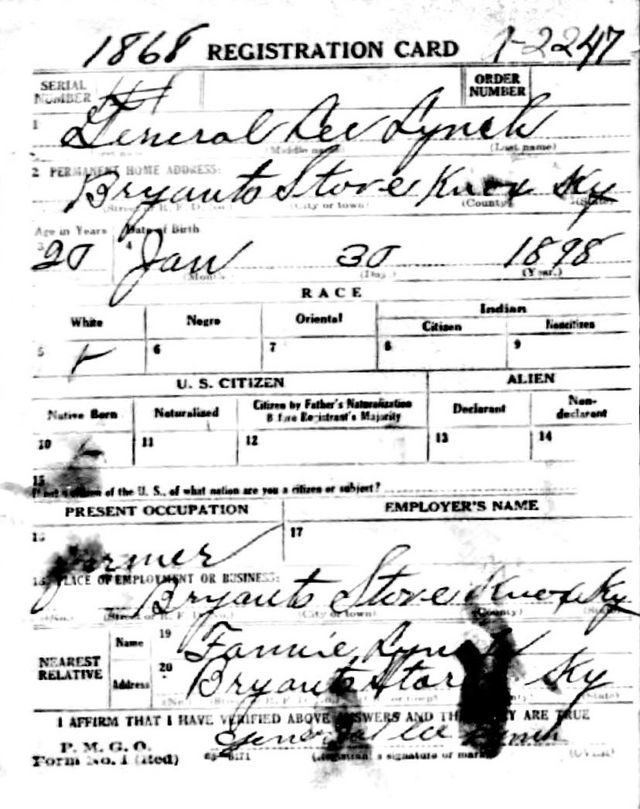 1868 REGISTRATION CARD 1-2247
SERIAL NUMBER
ORDER NUMBER
1 General Lee Lynch
(Middle name) (Last name)
2 PERMANENT HOME ADDRESS:
Bryants Store Knox Ky
(Street or R. F. D. No.) (City or town) (County) (State)
Age in Years Date of Birth
3 20 4 Jan 30 1898
(Month) (Day.) (Year.)
RACE
White Negro Oriental Indian
Citizen Noncitizen
5 6 7 8 9
U. S. CITIZEN ALIEN
Native Born Naturalized Citizen by Father's Naturalization Before Registrant's Majority Declarant Non-declarant
10 11 12 13 14
15
If not a citizen of the U. S., of what nation are you a citizen or subject?
PRESENT OCCUPATION EMPLOYER'S NAME
16 17
Farmer
18 PLACE OF EMPLOYMENT OR BUSINESS:
Bryants Store Knox Ky
(No.) (Street or R. F. D. No.) (City or town) (County) (State)
NEAREST RELATIVE
Name 19 Fannie Lynch
Address 20 Bryants Store Ky
I AFFIRM THAT I HAVE VERIFIED ABOVE ANSWERS AND THAT THEY ARE TRUE
P. M. G. O.
Form No. 1 (Red) General Lee Lynch
(Registrant's signature or mark) (OVER)